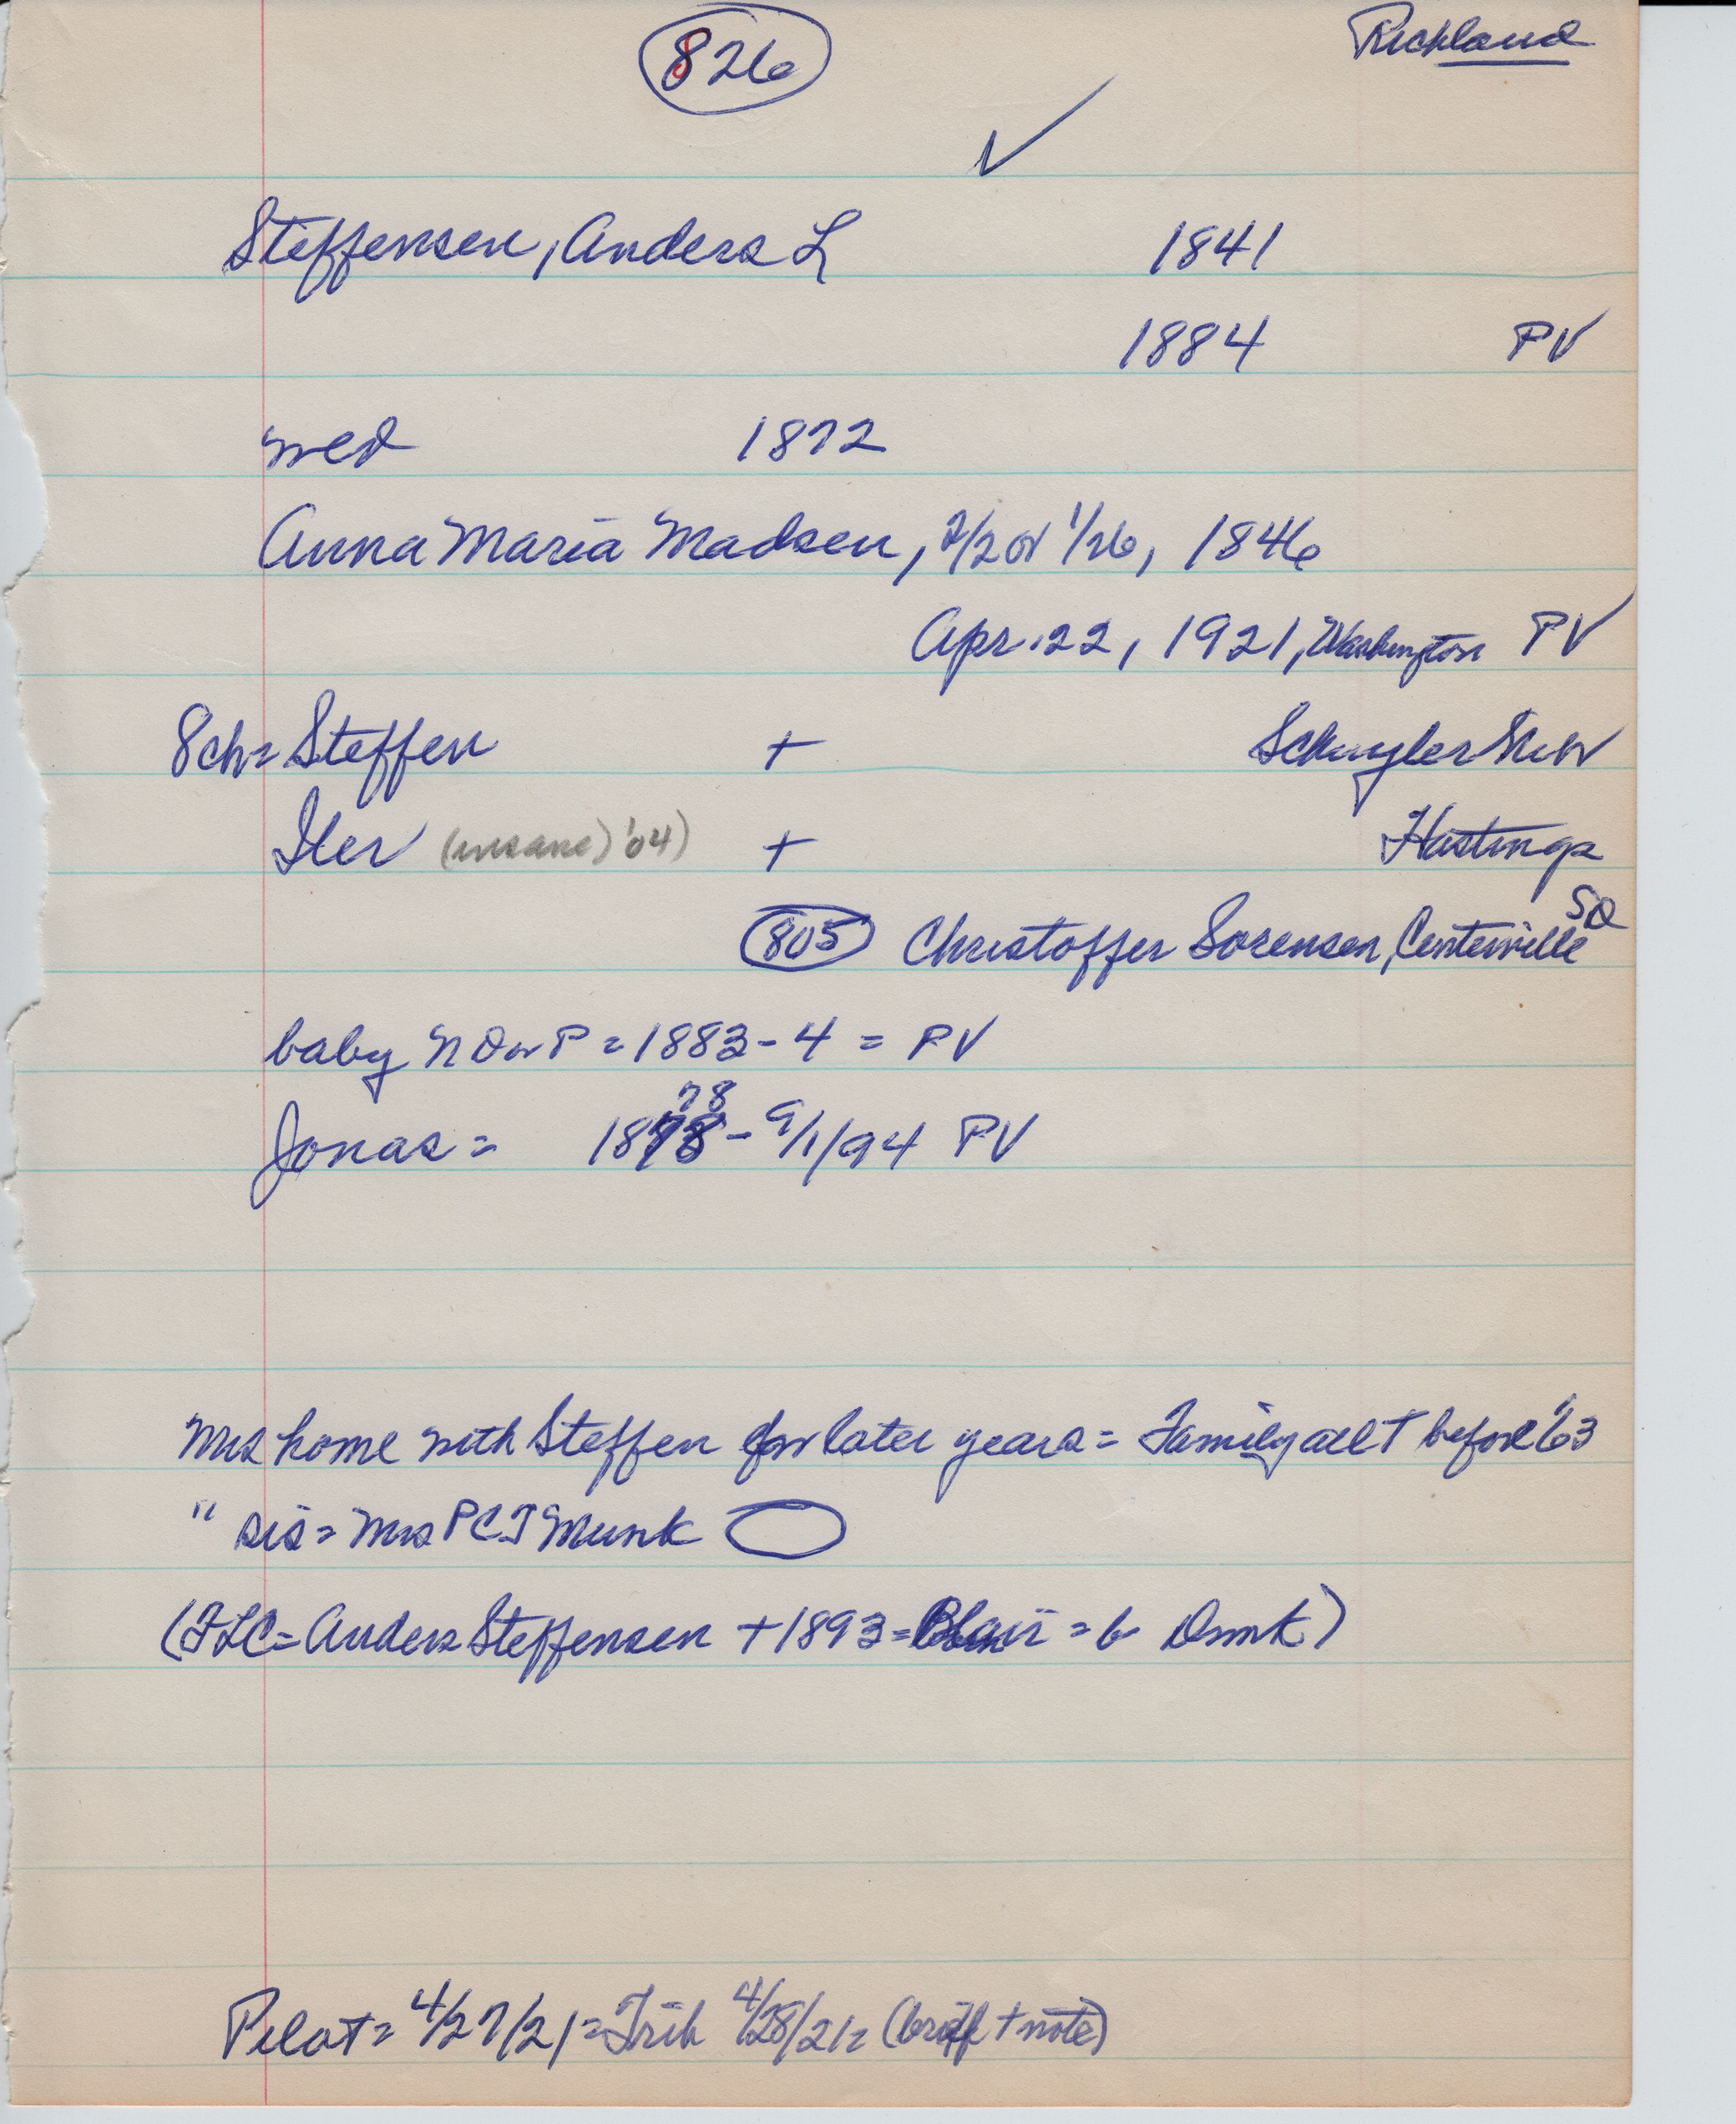 826 Richland
✓
Steffensen, Anders L 1841
1884 PV
wed 1872
Anna Maria Madsen, 2/2 or 1/26, 1846
Apr. 22, 1921, Washington PV
8 ch = Steffen + Schuyler Neb
Iler (insane) '04) + Hastings
805 Christoffer Sorensen, Centerville SD
baby N D or P = 1883-4 = PV
Jonas = 1878 78 - 9/1/94 PV
Mrs home with Steffen for later years = Family all + before '63
" sis = Mrs PCJ Munk
(FLC = Anders Steffensen + 1893 = Blair = b Dmk)
Pilot = 4/27/21 = Trib 4/28/21 = (brief + note)